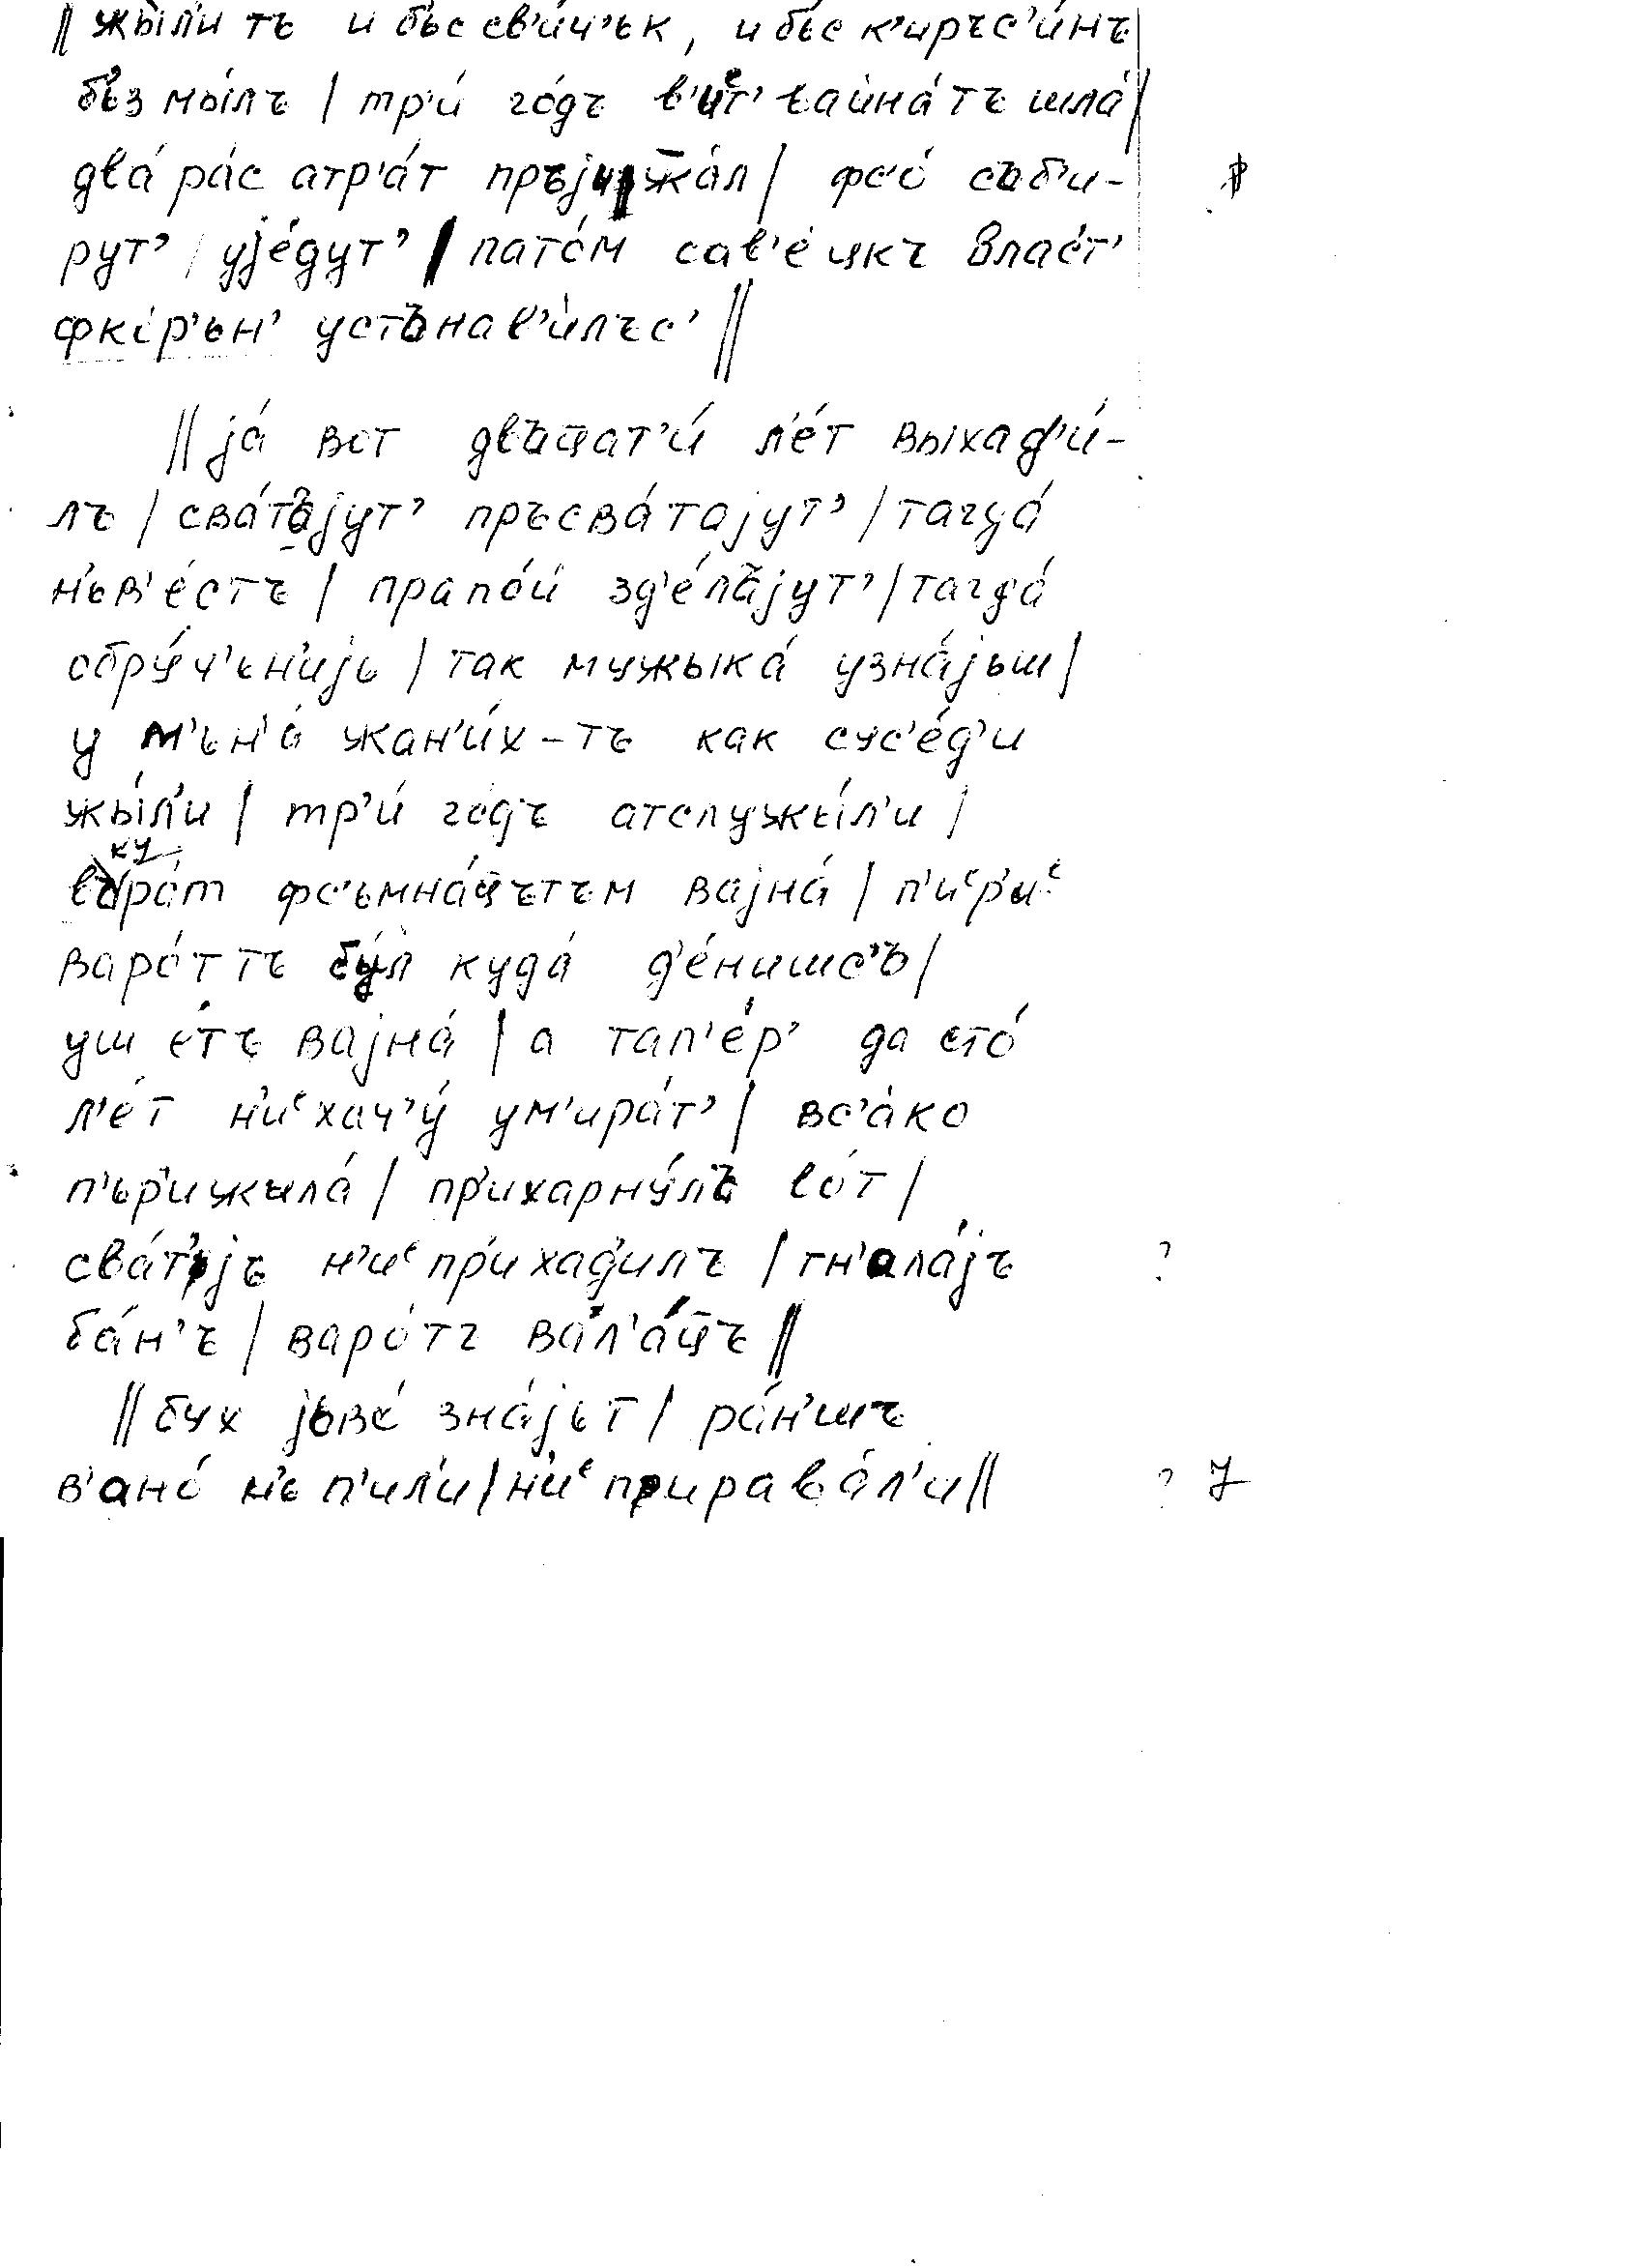 || жы́л'и тъ и б'ьс св'и́ч'ьк, и б'ьс к'иръс'и́нъ
б'ьз мы́лъ | тр'и́ го́дъ в'иᵉт' вайна́тъ шла́ |
два́ ра́с атр'а́т пръjижа́л | фс'о́ съб'и-
рут' | уjе́дут' | пато́м сав'е́цкъ власт'
фко́р'ьн' устънав'и́лъс' ||
|| jа́ вот двъцат'и́ л'е́т выхад'и́-
лъ | сва́тъjут' пръсва́таjут' | тагда́
н'ьв'е́стъ | прапо́й зд'е́лъjут' | тагда́
обру́ч'ьн'иjь | так мужыка́ узна́jьш |
у м'ьн'а́ жан'и́х-тъ как сус'е́д'и
жы́л'и | тр'и́ го́дъ атслужы́л'и |
фс'ьмна́цътъм ваjна́ | п'иᵉр'иᵉ
варо́ттъ бы́л куда́ д'е́нишс'ъ |
уш е́тъ ваjна́ | а тап'е́р' да сто́
л'е́т н'иᵉ хач'у́ ум'ира́т' | вс'а́ко
п'ьр'ижыла́ | пр'ихарну́лъ во́т |
сва́т'jъ н'иᵉ пр'ихад'илъ | гн'ала́jъ ?
ба́н'ъ | варо́тъ вал'а́цъ ||
|| бух jьво́ зна́jьт | ра́н'шъ
в'ано́ н'ь п'ил'и | н'иᵉ пирава́л'и || ? 7